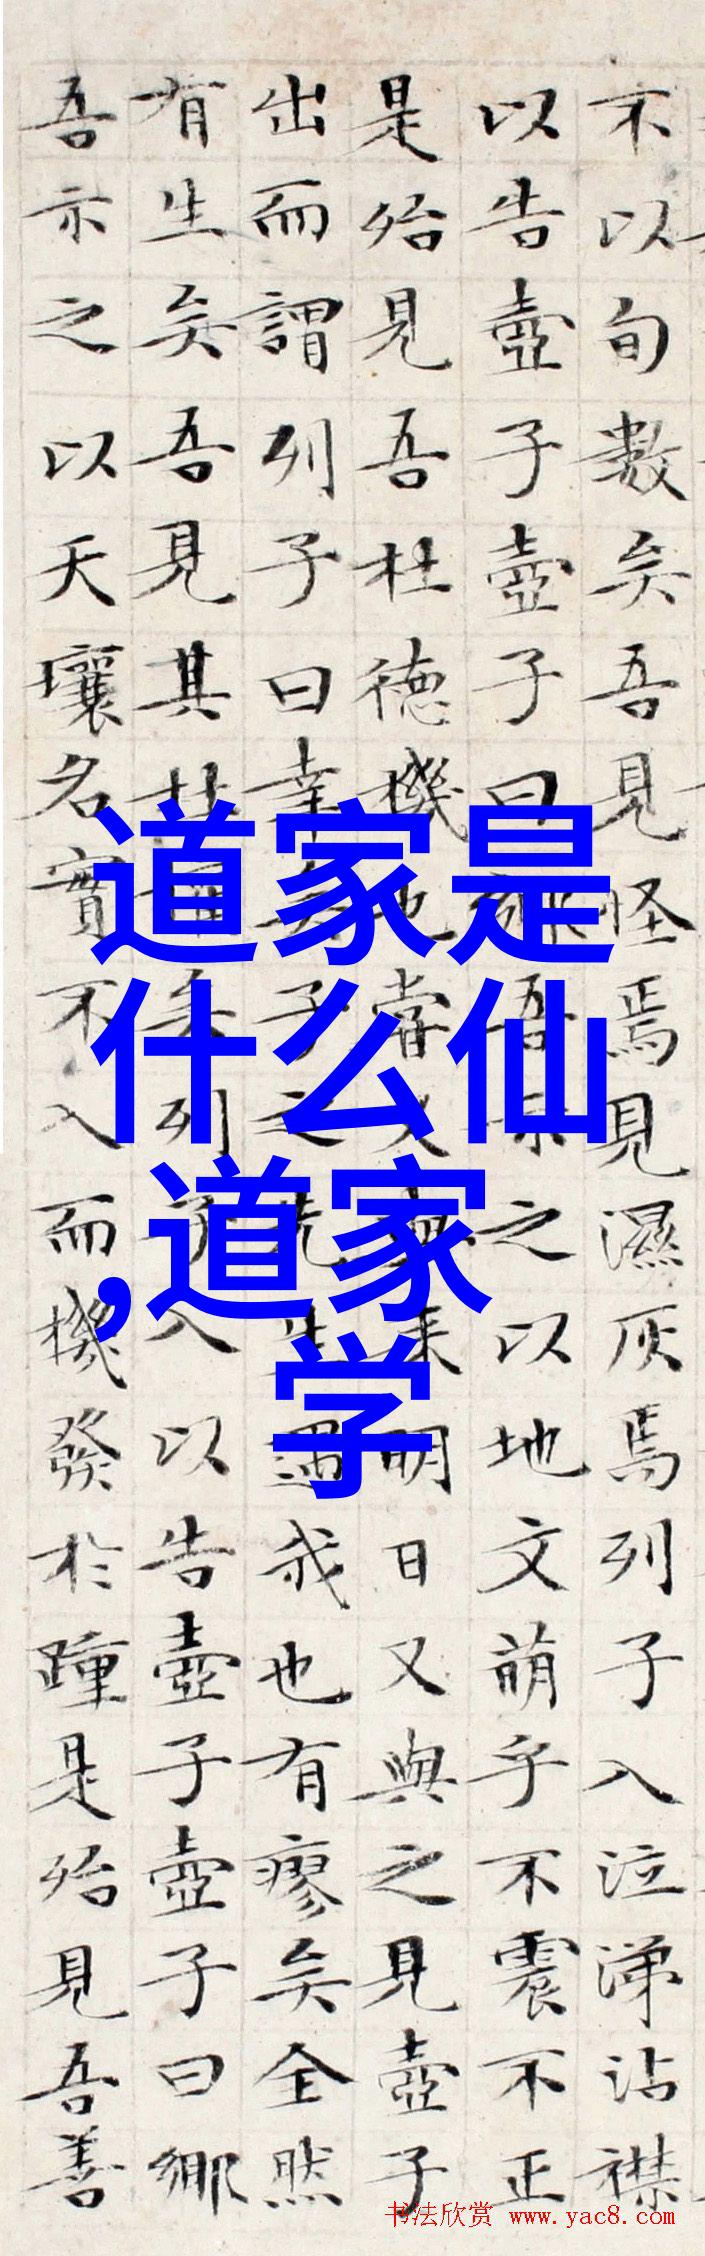 不以旬數矣吾見怪焉見濕灰焉列子入泣涕沾襟
以告壺子壺子曰鄉吾示之以地文萌乎不震不正
是殆見吾杜德機也嘗又來明日又與之見壺子
出而謂列子曰幸矣子之先生遇我也有瘳矣全然
有生矣吾見其杜矣列子入以告壺子壺子曰鄉
吾示之以天壤名實不入而機發於踵是殆見吾善
道家是
什么仙
,道家
学
书法欣赏 www.yac8.com